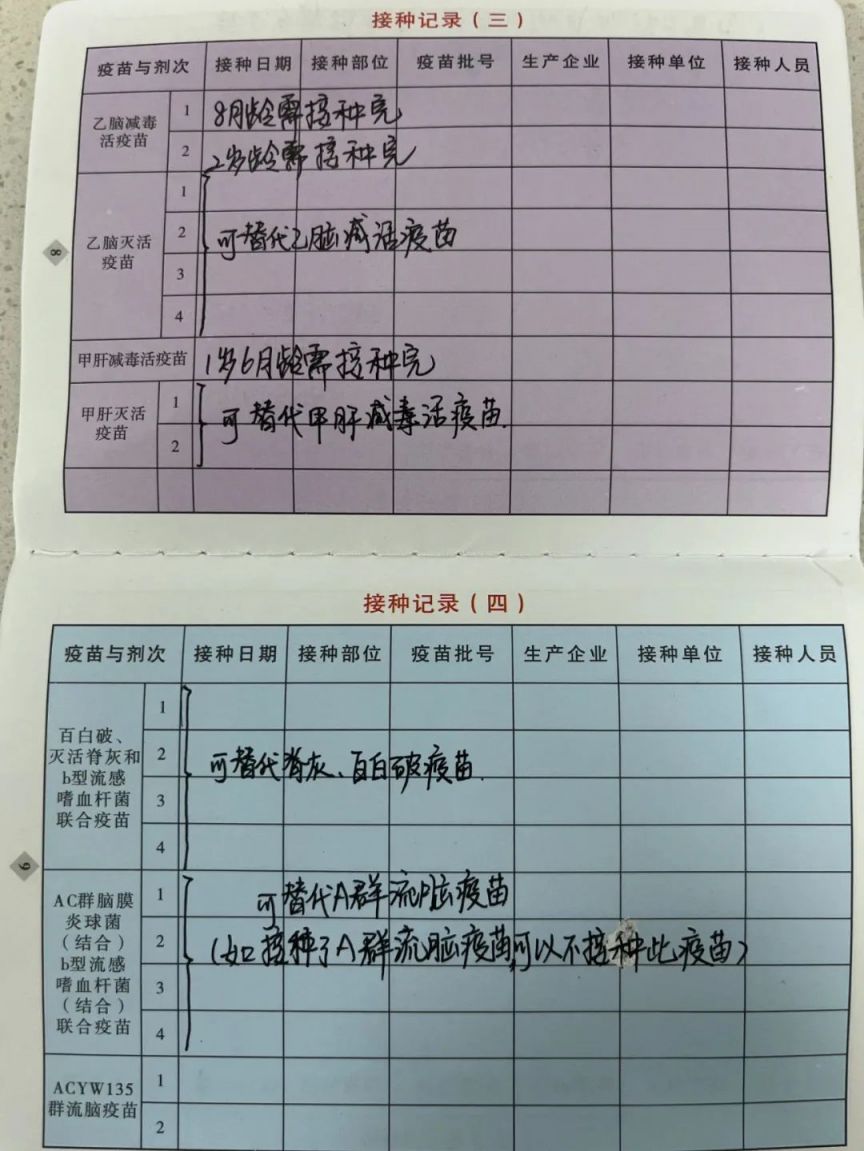 接种记录（三）
疫苗与剂次 接种日期 接种部位 疫苗批号 生产企业 接种单位 接种人员
乙脑减毒
活疫苗
1 8月龄需接种完
2 2岁龄需接种完
乙脑灭活
疫苗
1
2 可替代乙脑减活疫苗
3
4
甲肝减毒活疫苗 1岁6月龄需接种完
甲肝灭活
疫苗
1 可替代甲肝减毒活疫苗.
2
8
接种记录（四）
疫苗与剂次 接种日期 接种部位 疫苗批号 生产企业 接种单位 接种人员
百白破、
灭活脊灰和
b型流感
嗜血杆菌
联合疫苗
1
2 可替代脊灰、百白破疫苗.
3
4
AC群脑膜
炎球菌
（结合）
b型流感
嗜血杆菌
（结合）
联合疫苗
1 可替代A群流脑疫苗
2 (如接种了A群流脑疫苗,可以不接种此疫苗)
3
4
ACYW135
群流脑疫苗
1
2
9